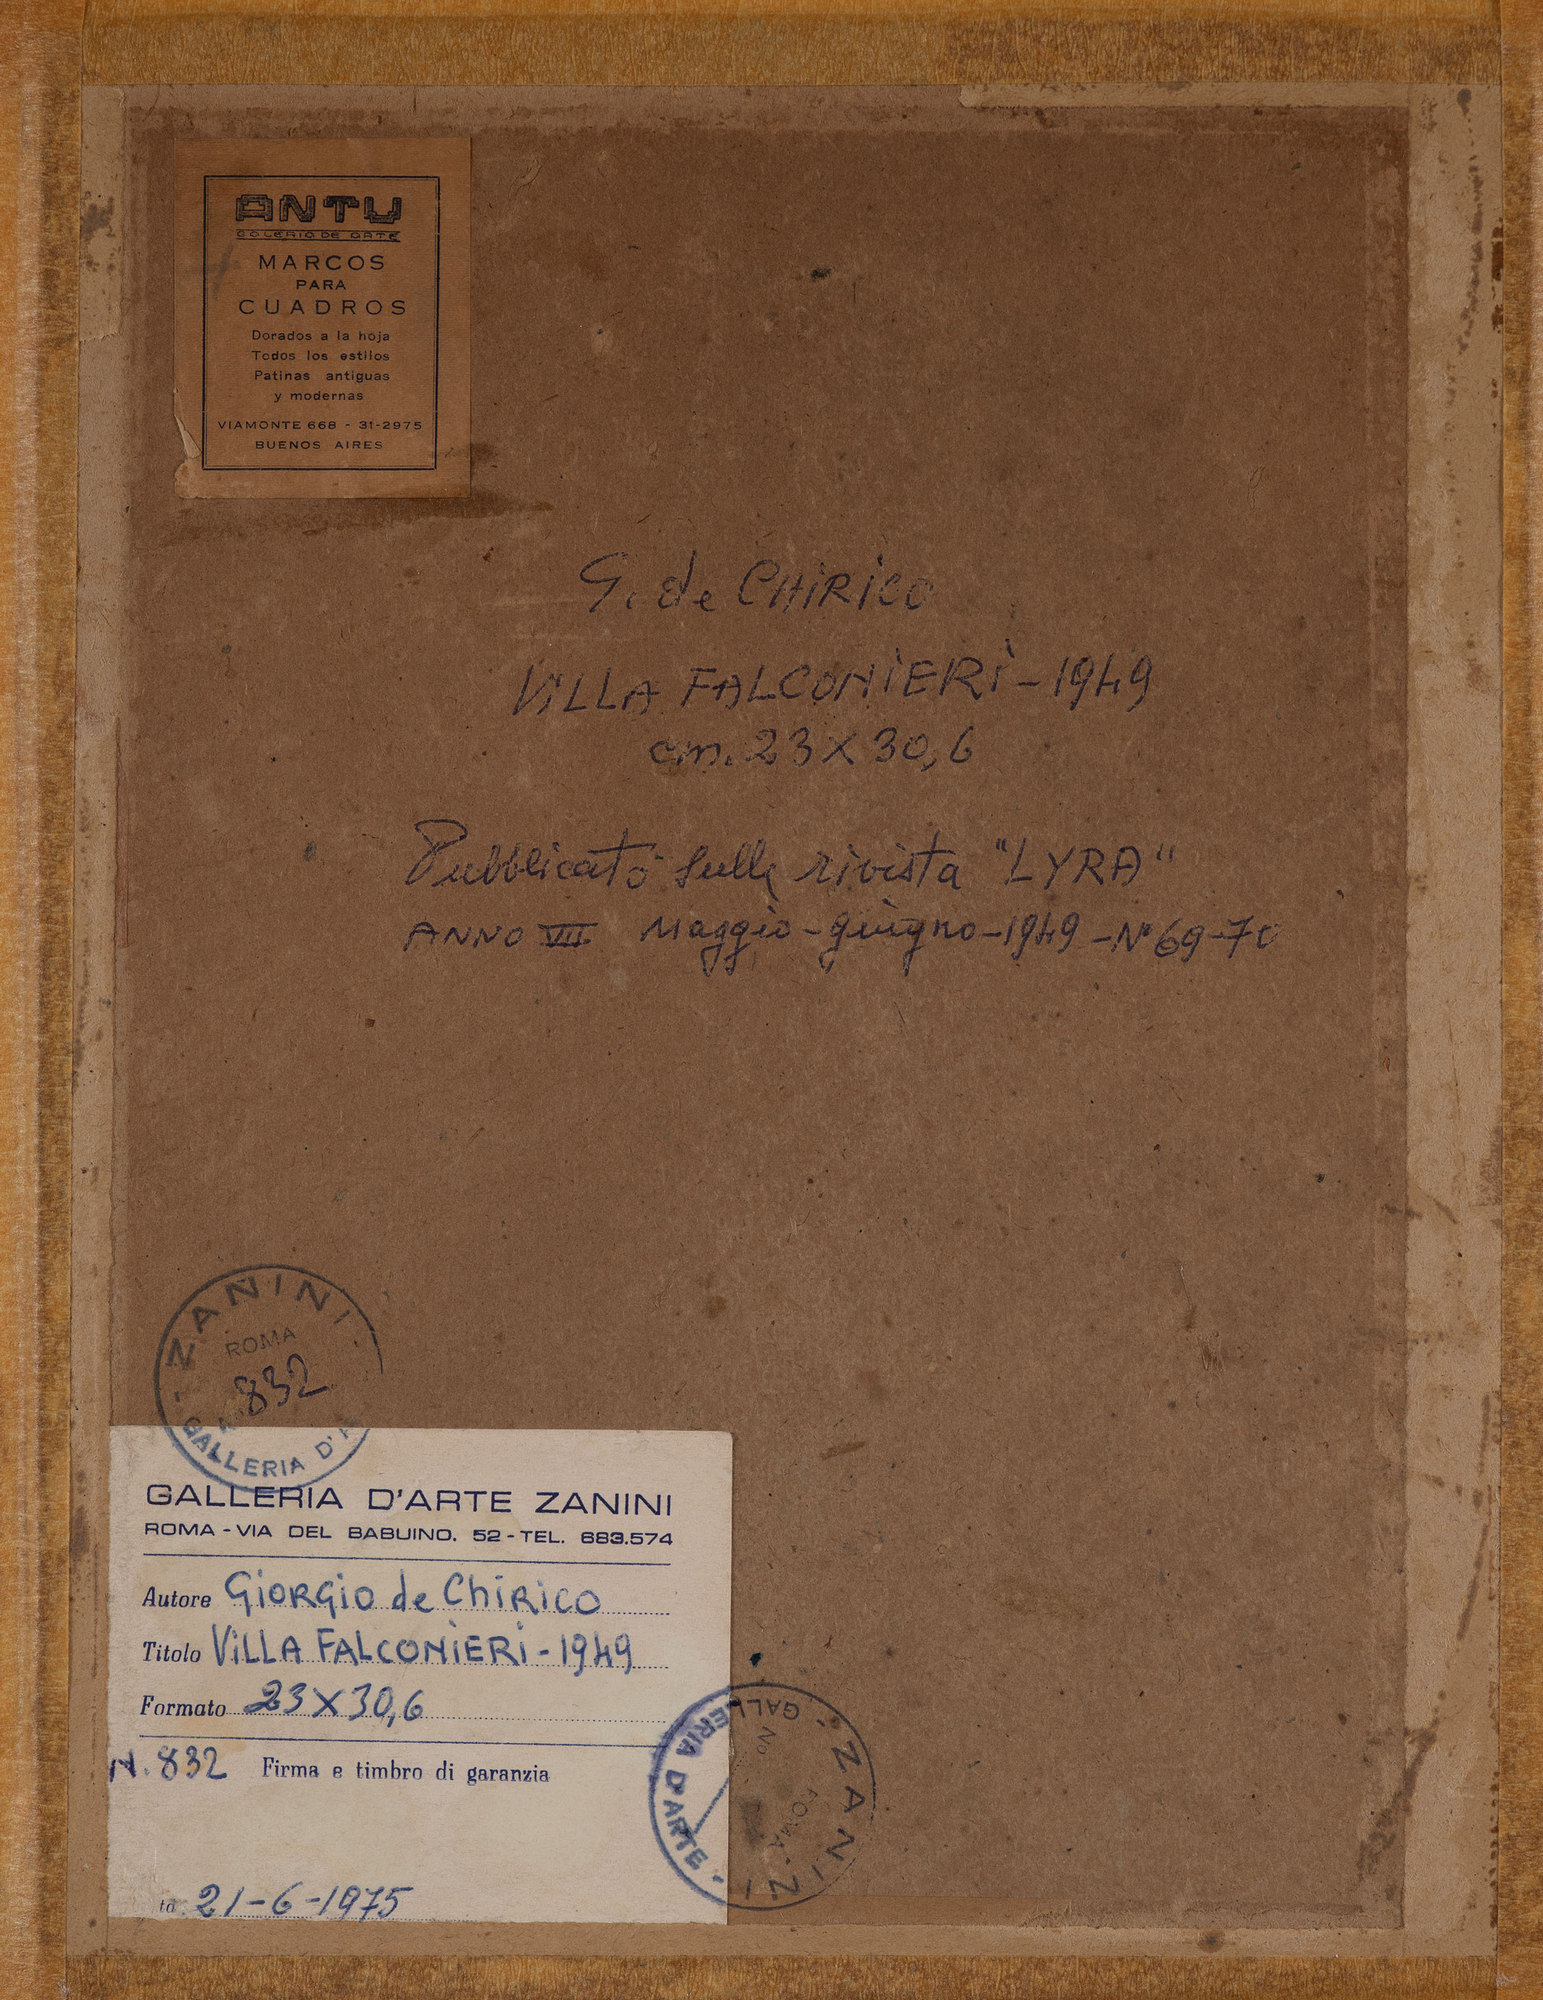 ANTU
GALERIA DE ARTE
MARCOS
PARA
CUADROS
Dorados a la hoja
Todos los estilos
Patinas antiguas
y modernas
VIAMONTE 668 - 31-2975
BUENOS AIRES
G. de CHIRICO
VILLA FALCONIERI - 1949
cm. 23 X 30,6
Pubblicato sulla rivista "LYRA"
ANNO VII Maggio - giugno - 1949 - N° 69-70
- ZANINI -
ROMA
N. 832
GALLERIA D'A
GALLERIA D'ARTE ZANINI
ROMA - VIA DEL BABUINO. 52 - TEL. 683.574
Autore Giorgio de Chirico
Titolo VILLA FALCONIERI - 1949
Formato 23 X 30,6
N. 832 Firma e timbro di garanzia
ta 21-6-1975
- ZANINI -
GALLERIA D'ARTE -
ROMA
No